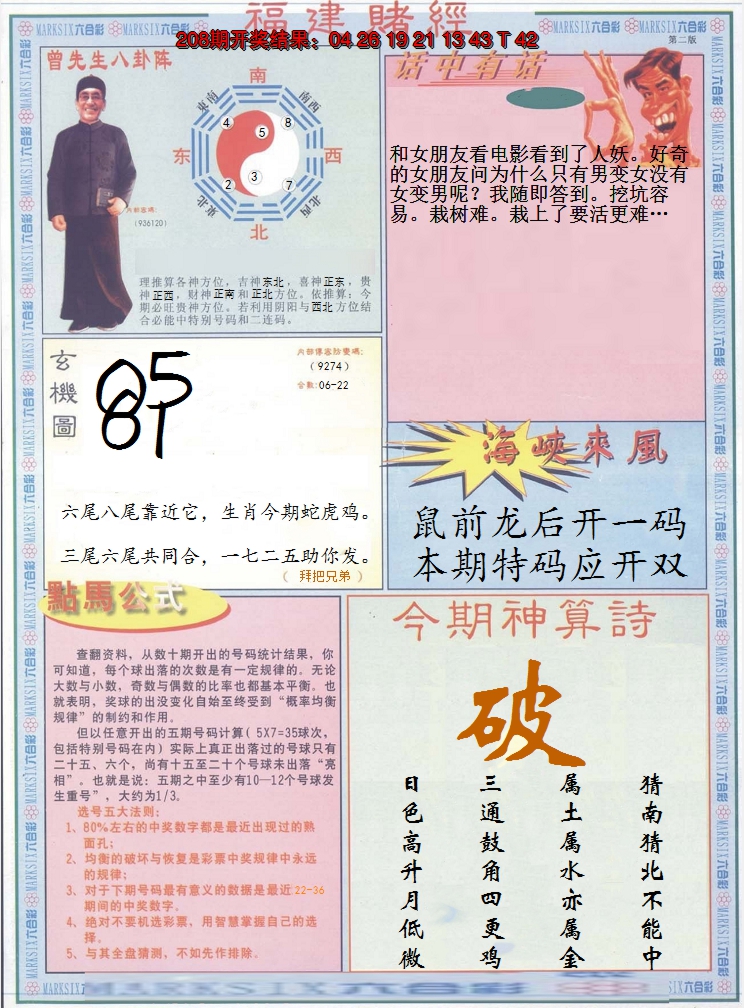 福建賭經
208期开奖结果：04 26 19 21 13 43 T 42
第二版
曾先生八卦阵
南
東南
南西
4
5
8
东
西
2
3
7
東北
北西
北
內部密碼:
(936120)
理推算各神方位，吉神东北，喜神正东，贵
神正西，财神正南和正北方位。依推算：今
期必旺贵神方位。若利用阴阳与西北方位结
合必能中特别号码和二连码。
话中有话
和女朋友看电影看到了人妖。好奇
的女朋友问为什么只有男变女没有
女变男呢？我随即答到。挖坑容
易。栽树难。栽上了要活更难…
玄機圖
05
61
(9274)
合数:06-22
六尾八尾靠近它，生肖今期蛇虎鸡。
三尾六尾共同合，一七二五助你发。
（ 拜把兄弟 ）
海峽來風
鼠前龙后开一码
本期特码应开双
點馬公式
查翻资料，从数十期开出的号码统计结果，你
可知道，每个球出落的次数是有一定规律的。无论
大数与小数，奇数与偶数的比率也都基本平衡。也
就表明，奖球的出没变化自始至终受到“概率均衡
规律”的制约和作用。
但以任意开出的五期号码计算( 5X7=35球次，
包括特别号码在内) 实际上真正出落过的号球只有
二十五、六个，尚有十五至二十个号球未出落“亮
相”。也就是说：五期之中至少有10—12个号球发
生重号”，大约为1/3。
选号五大法则：
1、80%左右的中奖数字都是最近出现过的熟
面孔；
2、均衡的破坏与恢复是彩票中奖规律中永远
的规律；
3、对于下期号码最有意义的数据是最近 22-36
期间的中奖数字。
4、绝对不要机选彩票，用智慧掌握自己的选
择。
5、与其全盘猜测，不如先作排除。
今期神算詩
破
日色高升月低微
三通鼓角四更鸡
属土属水亦属金
猜南猜北不能中
MARKSIX六合彩